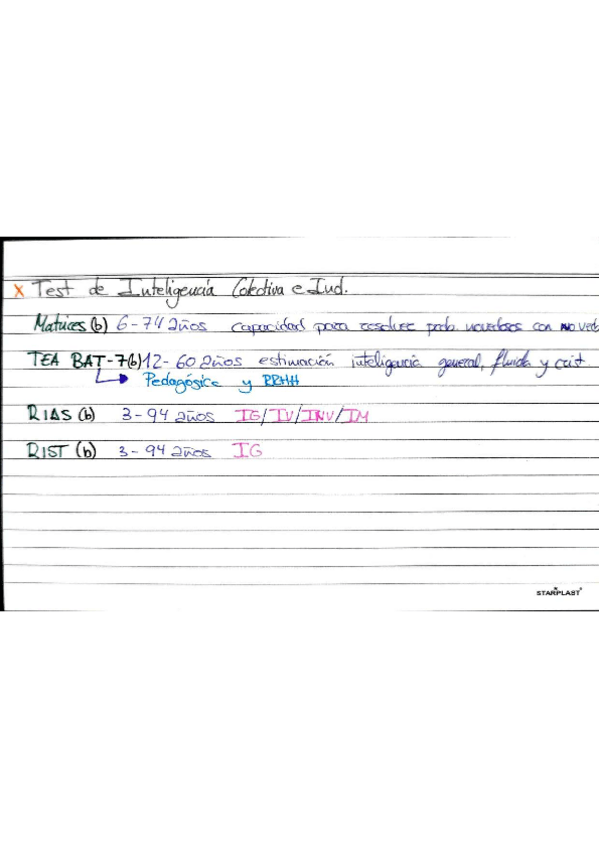 x Test de Inteligencia Colectiva e Ind.
Matrices (b) 6-74 años capacidad para resolver prob. novedosos con no verb
TEA BAT-7(b) 12-60 años estimación inteligencia general, fluida y crist.
Pedagógica y RRHH
RIAS (b) 3-94 años IG/IV/INV/IM
RIST (b) 3-94 años IG
STARPLAST